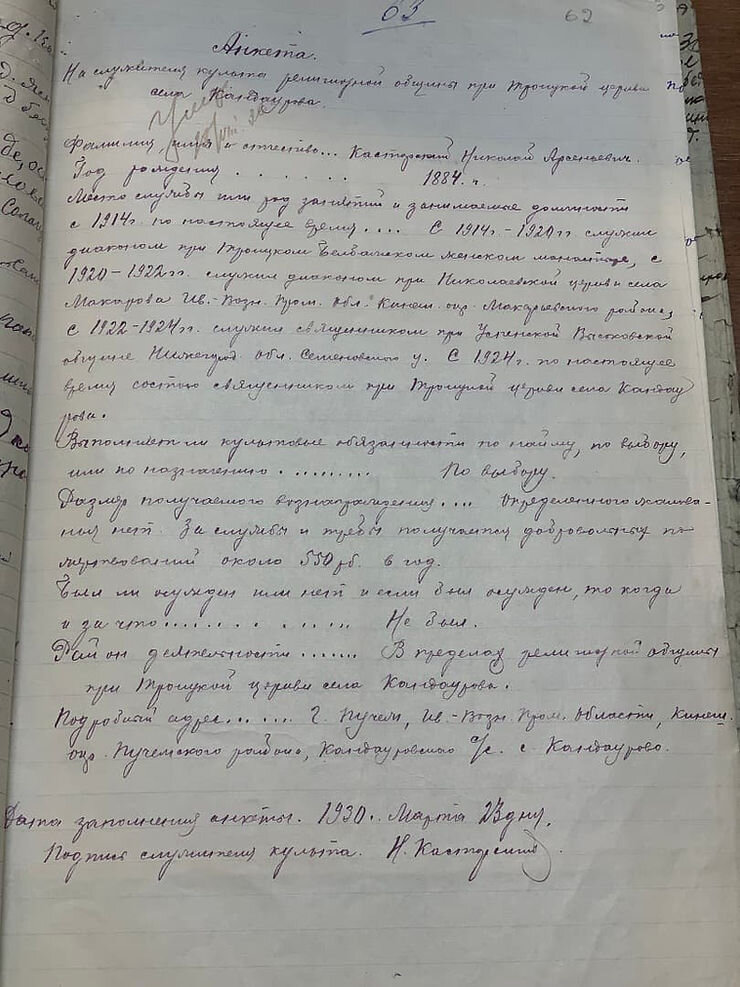 63
62
Анкета.
На служителя культа религиозной общины при Троицкой церкви
села Кандаурова.
Фамилия, имя и отчество... Касторский Николай Арсеньевич.
Год рождения . . . . . . 1884 г.
Место службы или род занятий и занимаемые должности
с 1914г. по настоящее время.... С 1914г.-1920 гг служил
диаконом при Троицком Белбажском женском монастыре, с
1920-1922 гг. служил диаконом при Николаевской церкви села
Макарова Ив.-Возн. Пром. Обл. Кинеш. окр. Макарьевского района,
с 1922-1924 гг. служил священником при Успенской Высоковской
общине Нижегород. обл. Семеновского у. С 1924г. по настоящее
время состою священником при Троицкой церкви села Кандау
рова.
Выполняет ли культовые обязанности по найму, по выбору,
или по назначению ......... По выбору.
Размер получаемого вознаграждения.... Определенного жалова-
ния нет. За службы и требы получается добровольных по
жертвований около 550 рб. в год.
Был ли осужден или нет и если был осужден, то когда
и за что............. Не был.
Район деятельности....... В пределах религиозной общины
при Троицкой церкви села Кандаурова.
Подробный адрес...... Г. Пучеж, Ив.-Возн. Пром. Области, Кинеш.
окр. Пучежского района, Кандауровского с/с. с. Кандаурово.
Дата заполнения анкеты. 1930г. Марта 23 дня.
Подпись служителя культа. Н. Касторский